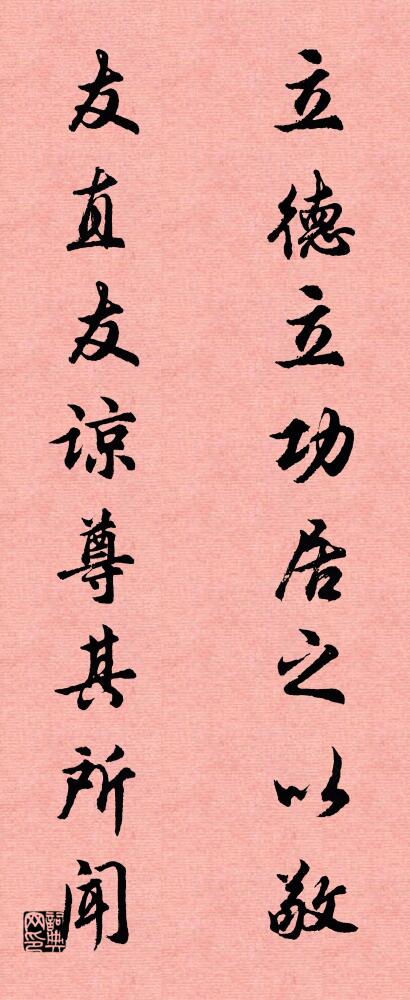 立德立功居之以敬
友直友谅尊其所闻
词典网印